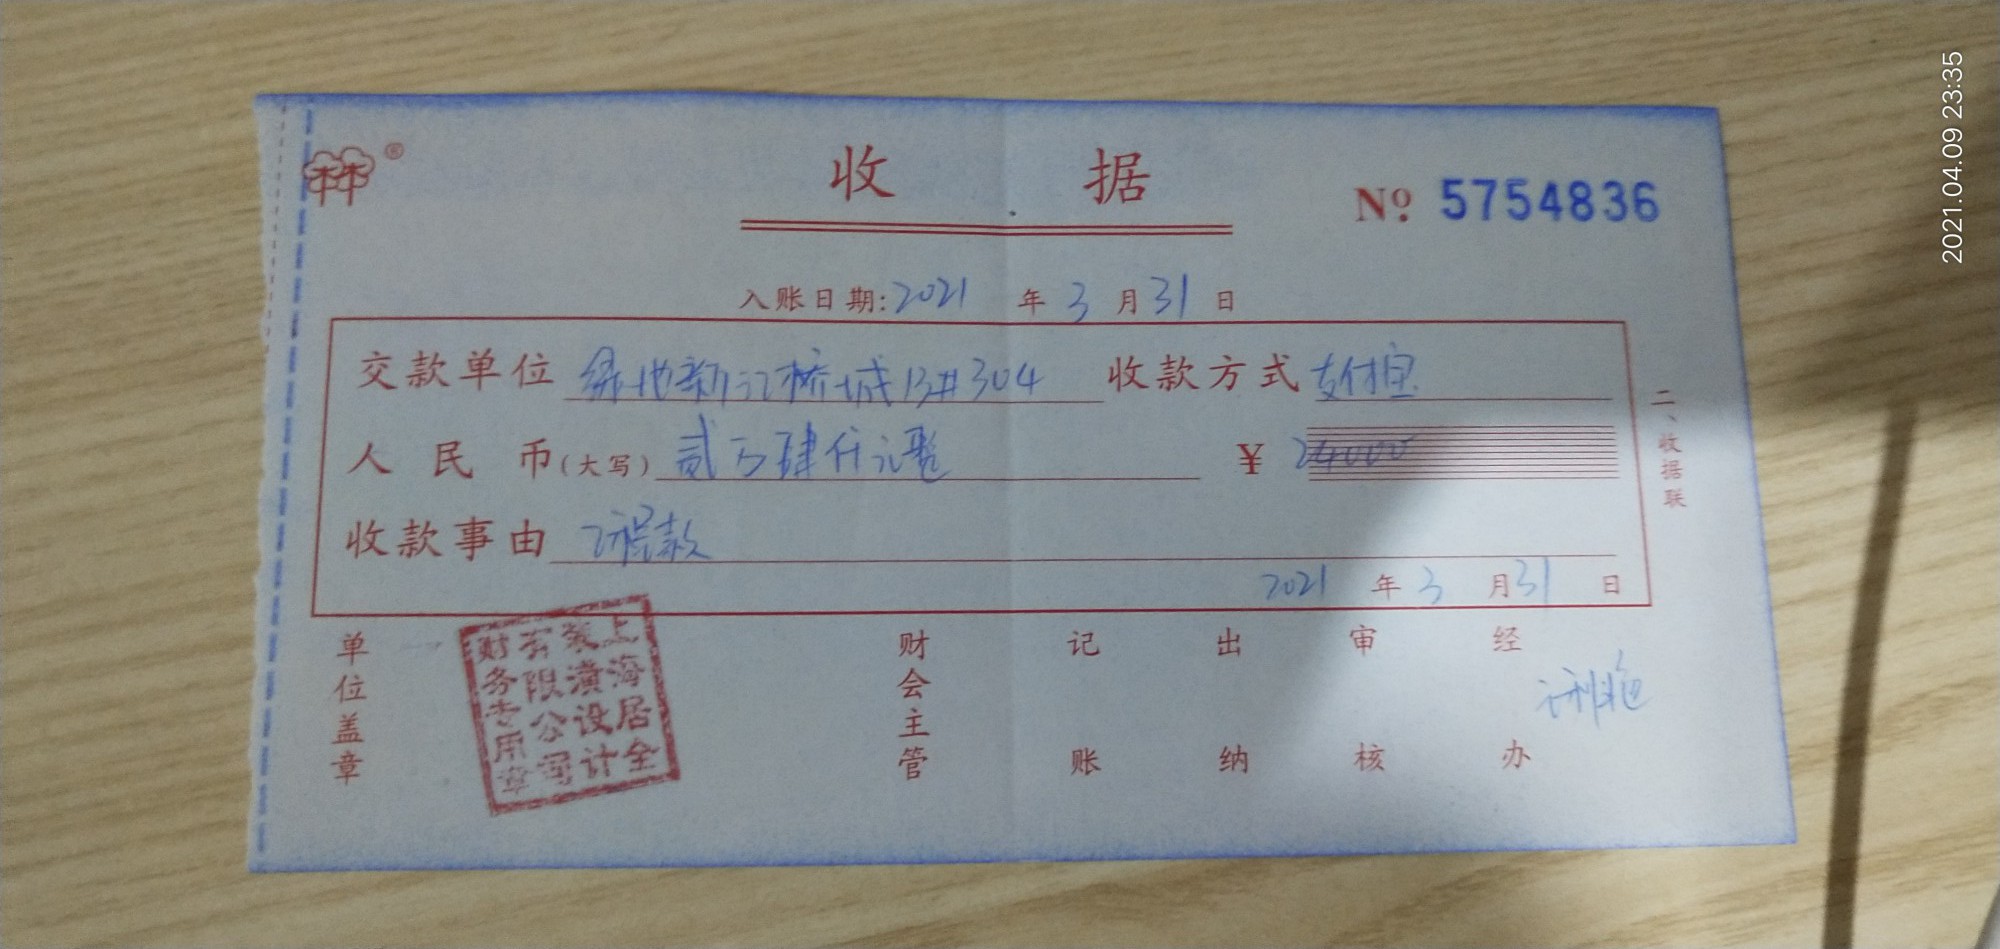 收 据
№ 5754836
入账日期: 2021 年 3 月 31 日
交款单位 绿地新江桥城13#304 收款方式 支付宝
人民币(大写) 贰万肆仟元整 ¥ 24000
收款事由 工程款
2021 年 3 月 31 日
二、收据联
单位盖章 财会主管 记账 出纳 审核 经办
上海居全装潢设计有限公司财务专用章
2021.04.09 23:35